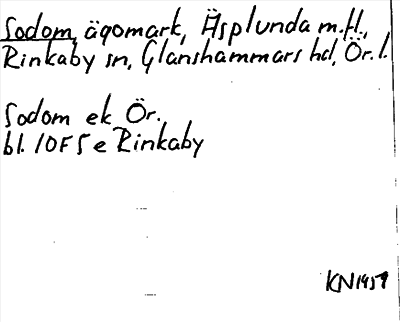 Sodom, ägomark, Äsplunda m.fl.,
Rinkaby sn, Glanshammars hd, Ör. l.
Sodom ek Ör.
bl. 10F 5 e Rinkaby
KN 1959